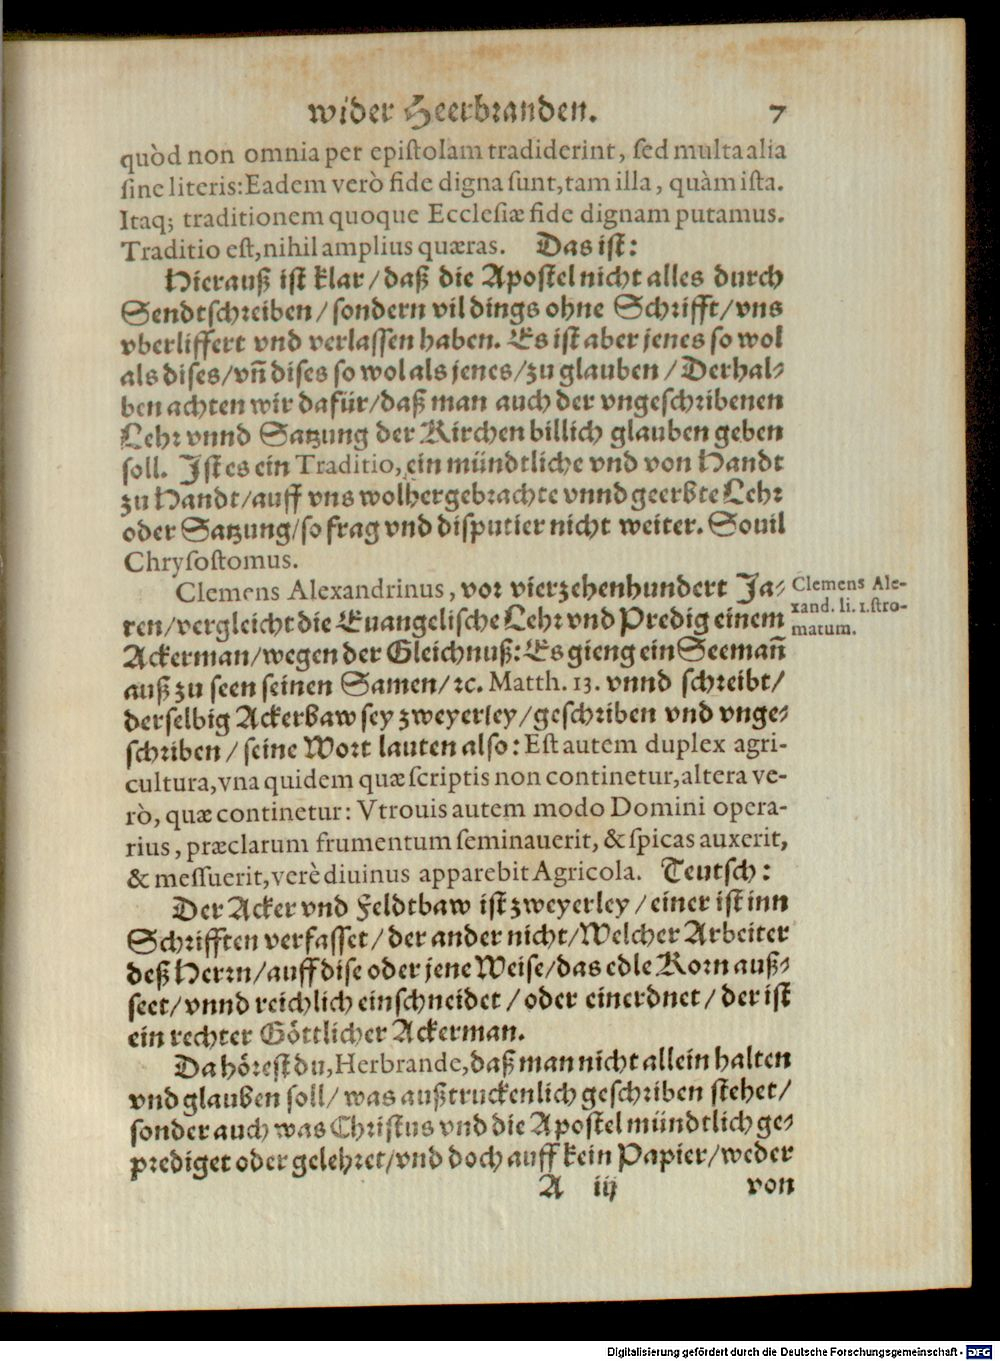 wider Heerbranden. 7
quòd non omnia per epistolam tradiderint, sed multa alia
sine literis: Eadem verò fide digna sunt, tam illa, quàm ista.
Itaq; traditionem quoque Ecclesiæ fide dignam putamus.
Traditio est, nihil amplius quæras. Das ist:
Hierauß ist klar/ daß die Apostel nicht alles durch
Sendtschreiben/ sondern vil dings ohne Schrifft/ vns
vberliffert vnd verlassen haben. Es ist aber jenes so wol
als dises/ vñ dises so wol als jenes/ zu glauben/ Derhal⸗
ben achten wir dafür/ daß man auch der vngeschribenen
Lehr vnnd Satzung der Kirchen billich glauben geben
soll. Ist es ein Traditio, ein mündtliche vnd von Handt
zu Handt/ auff vns wolhergebrachte vnnd geerbte Lehr
oder Satzung/ so frag vnd disputier nicht weiter. Souil
Chrysostomus.
Clemens Alexandrinus, vor vierzehenhundert Ja⸗
Clemens Ale-
xand. li. 1. stro-
matum.
ren/ vergleicht die Euangelische Lehr vnd Predig einem
Ackerman/ wegen der Gleichnuß: Es gieng ein Seemañ
auß zu seen seinen Samen/ ꝛc. Matth. 13. vnnd schreibt/
derselbig Ackerbaw sey zweyerley/ geschriben vnd vnge⸗
schriben/ seine Wort lauten also: Est autem duplex agri-
cultura, vna quidem quæ scriptis non continetur, altera ve-
rò, quæ continetur: Vtrouis autem modo Domini opera-
rius, præclarum frumentum seminauerit, & spicas auxerit,
& messuerit, verè diuinus apparebit Agricola. Teutsch:
Der Acker vnd Feldtbaw ist zweyerley/ einer ist inn
Schrifften verfasset/ der ander nicht/ Welcher Arbeiter
deß Herrn/ auff dise oder jene Weise/ das edle Korn auß⸗
seet/ vnnd reichlich einschneidet/ oder einerdnet/ der ist
ein rechter Göttlicher Ackerman.
Da hörest du, Herbrande, daß man nicht allein halten
vnd glauben soll/ was außtruckenlich geschriben stehet/
sonder auch was Christus vnd die Apostel mündtlich ge⸗
prediget oder gelehret/ vnd doch auff kein Papier/ weder
A iij von
Digitalisierung gefördert durch die Deutsche Forschungsgemeinschaft - DFG